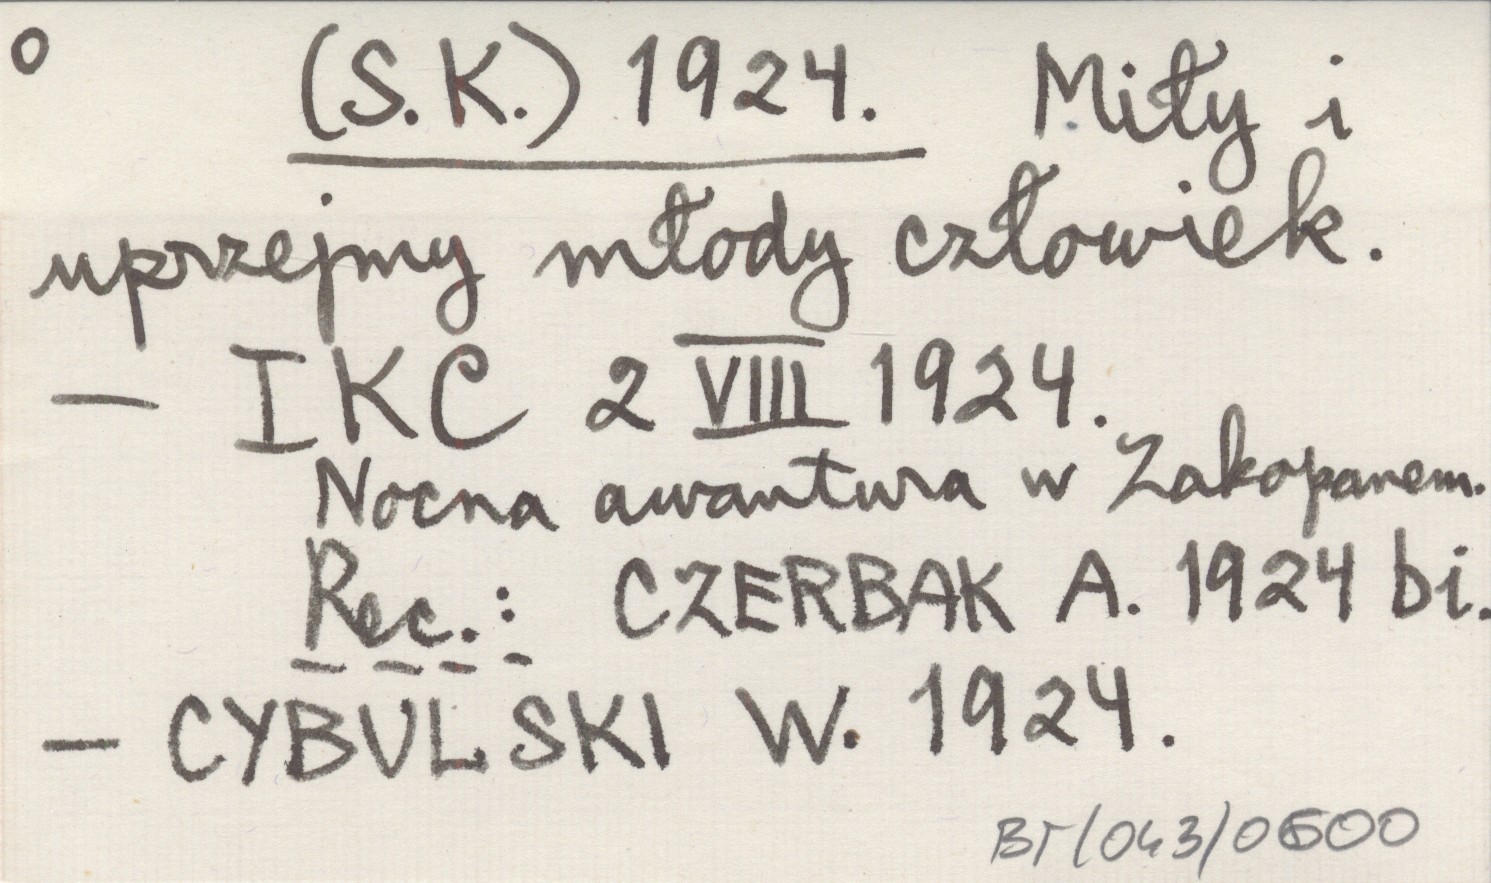 o (S.K.) 1924. Miły i
uprzejmy młody człowiek.
— IKC 2 VIII 1924.
Nocna awantura w Zakopanem.
Rec.: CZERBAK A. 1924 bi.
— CYBULSKI W. 1924.
BT/043/0600